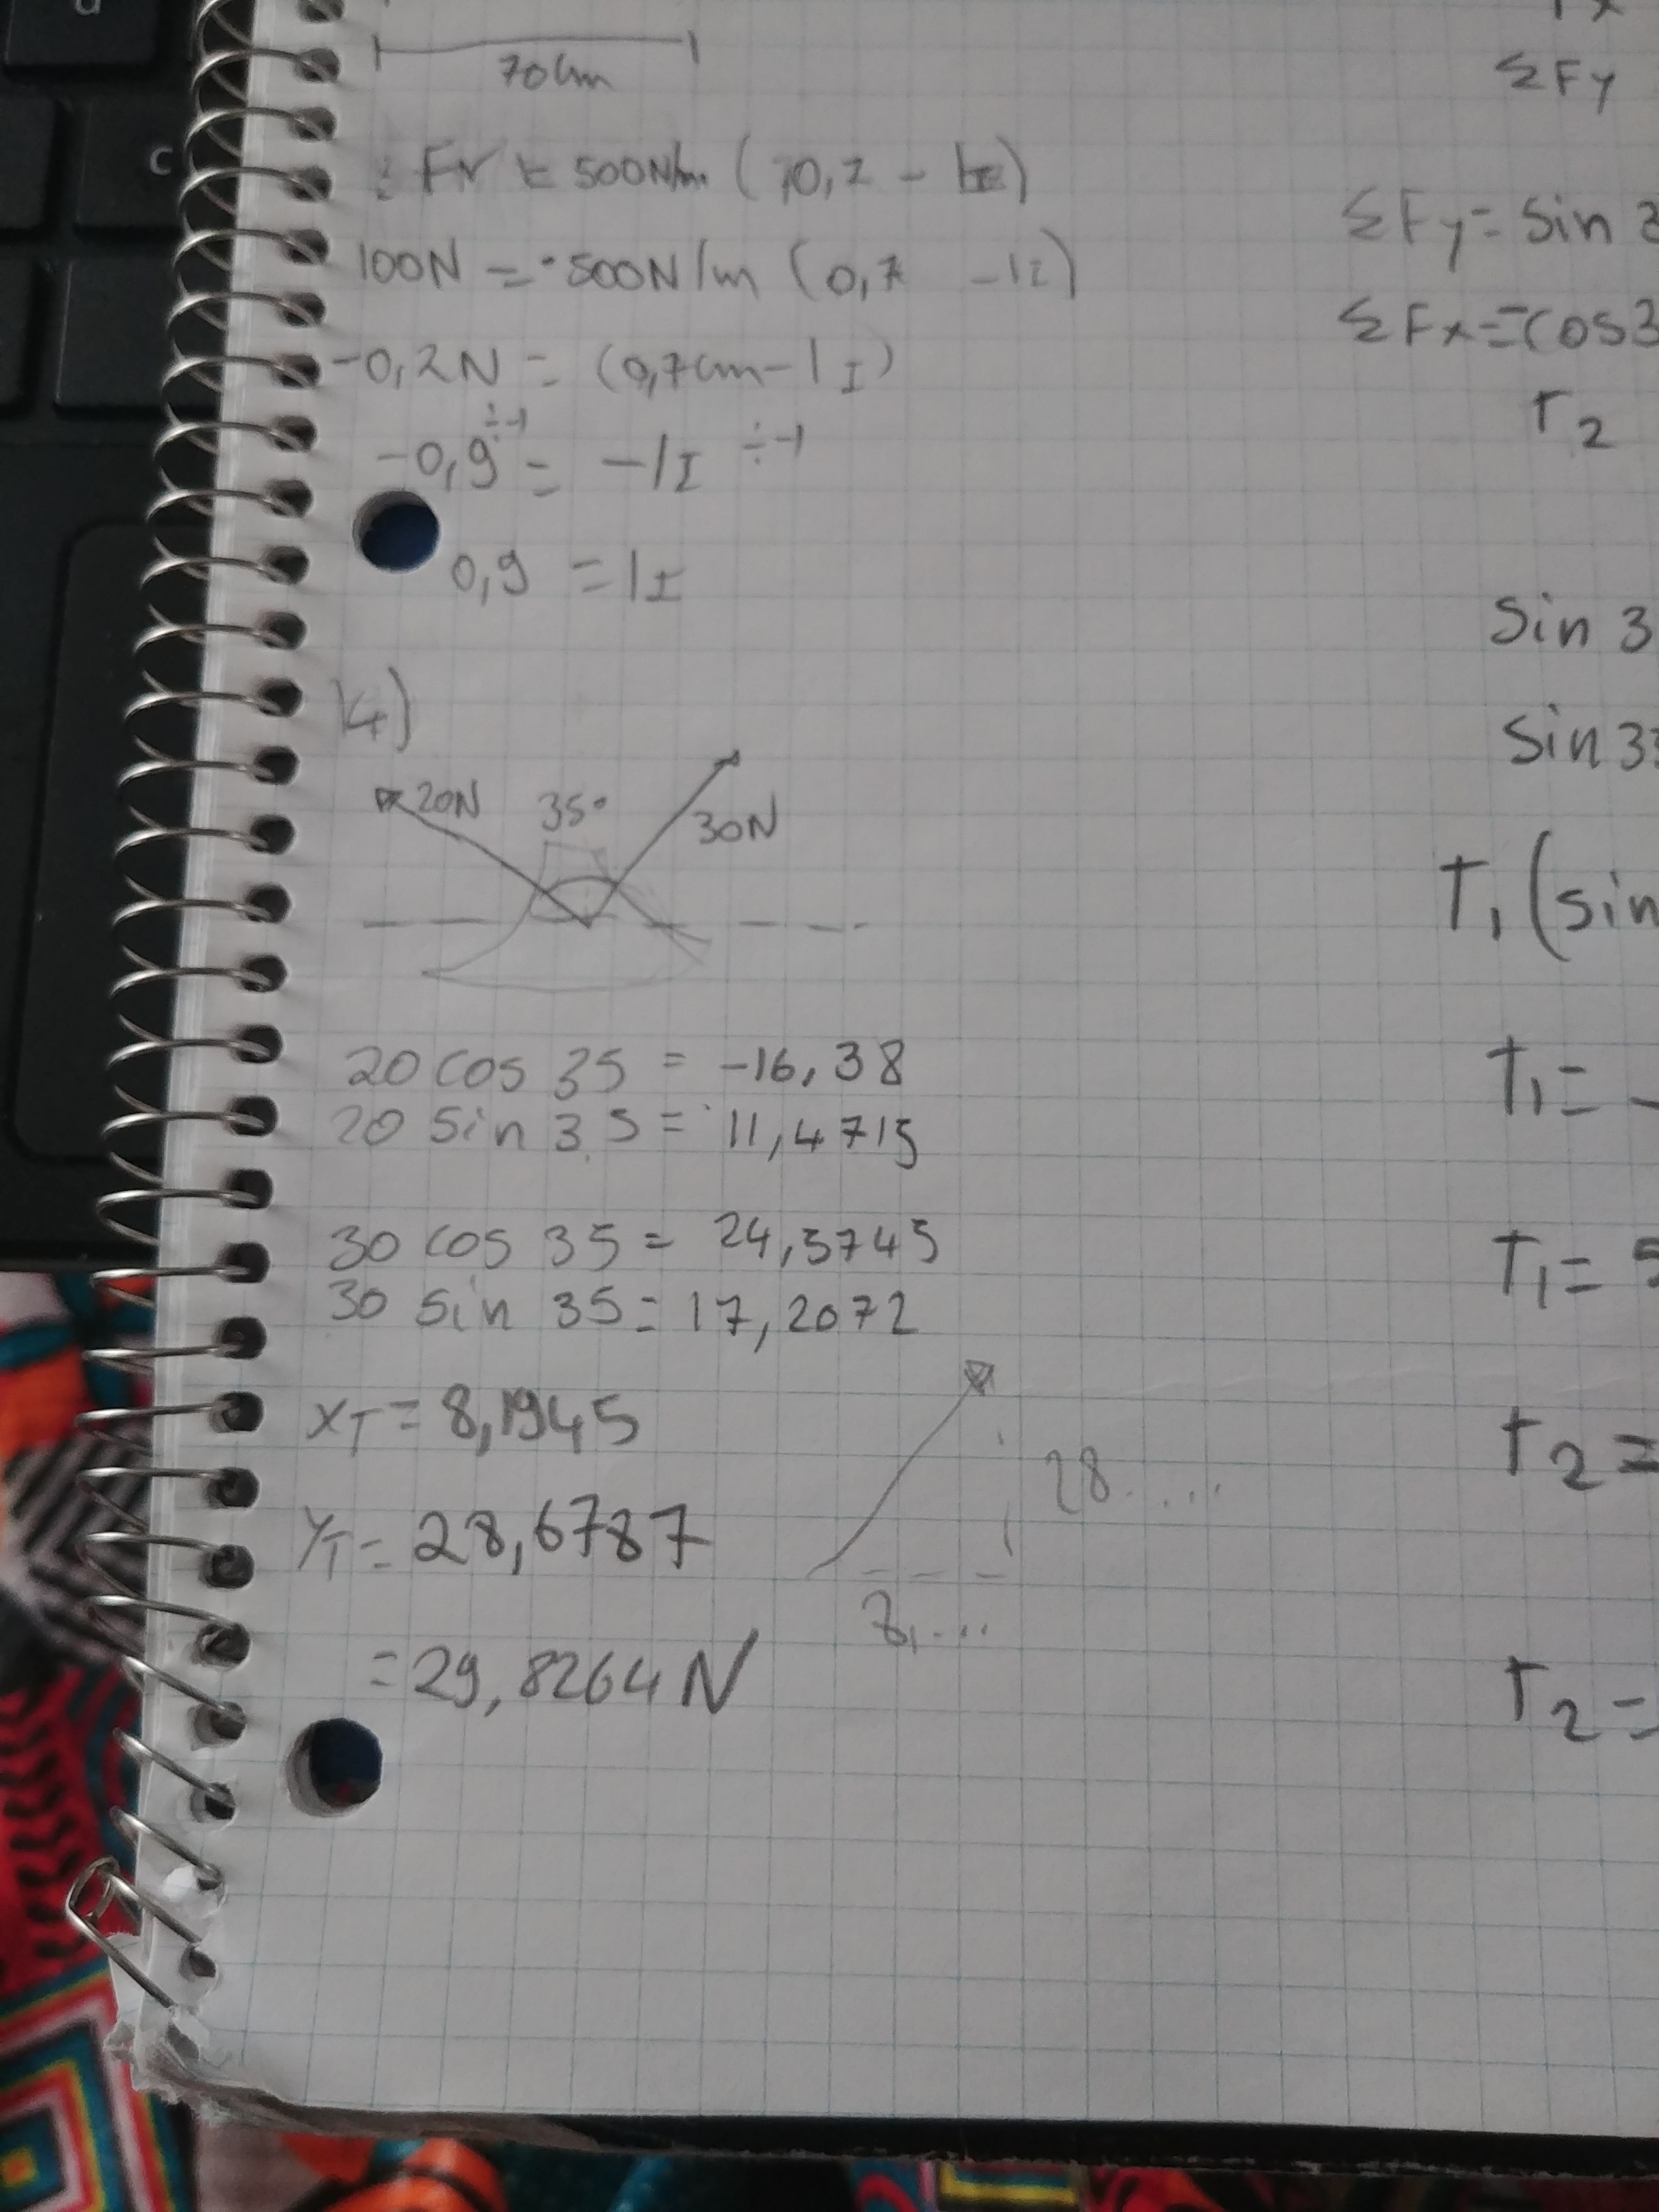 70cm
Fr = 500N/m (0,7 - lI)
100N = 500N/m (0,7 - lI)
-0,2N = (0,7cm - lI)
-0,9 ÷-1 = -lI ÷-1
0,9 = lI
14)
20N 35° 30N
20 cos 35 = -16,38
20 sin 35 = 11,4715
30 cos 35 = 24,5745
30 sin 35 = 17,2072
xT = 8,1945
yT = 28,6787
28....
8,...
= 29,8264 N
ΣFy
ΣFy = sin 3
ΣFx = -cos3
T2
sin 3
sin 33
T1 (sin
T1 =
T1 = 5
T2 =
T2 =
c